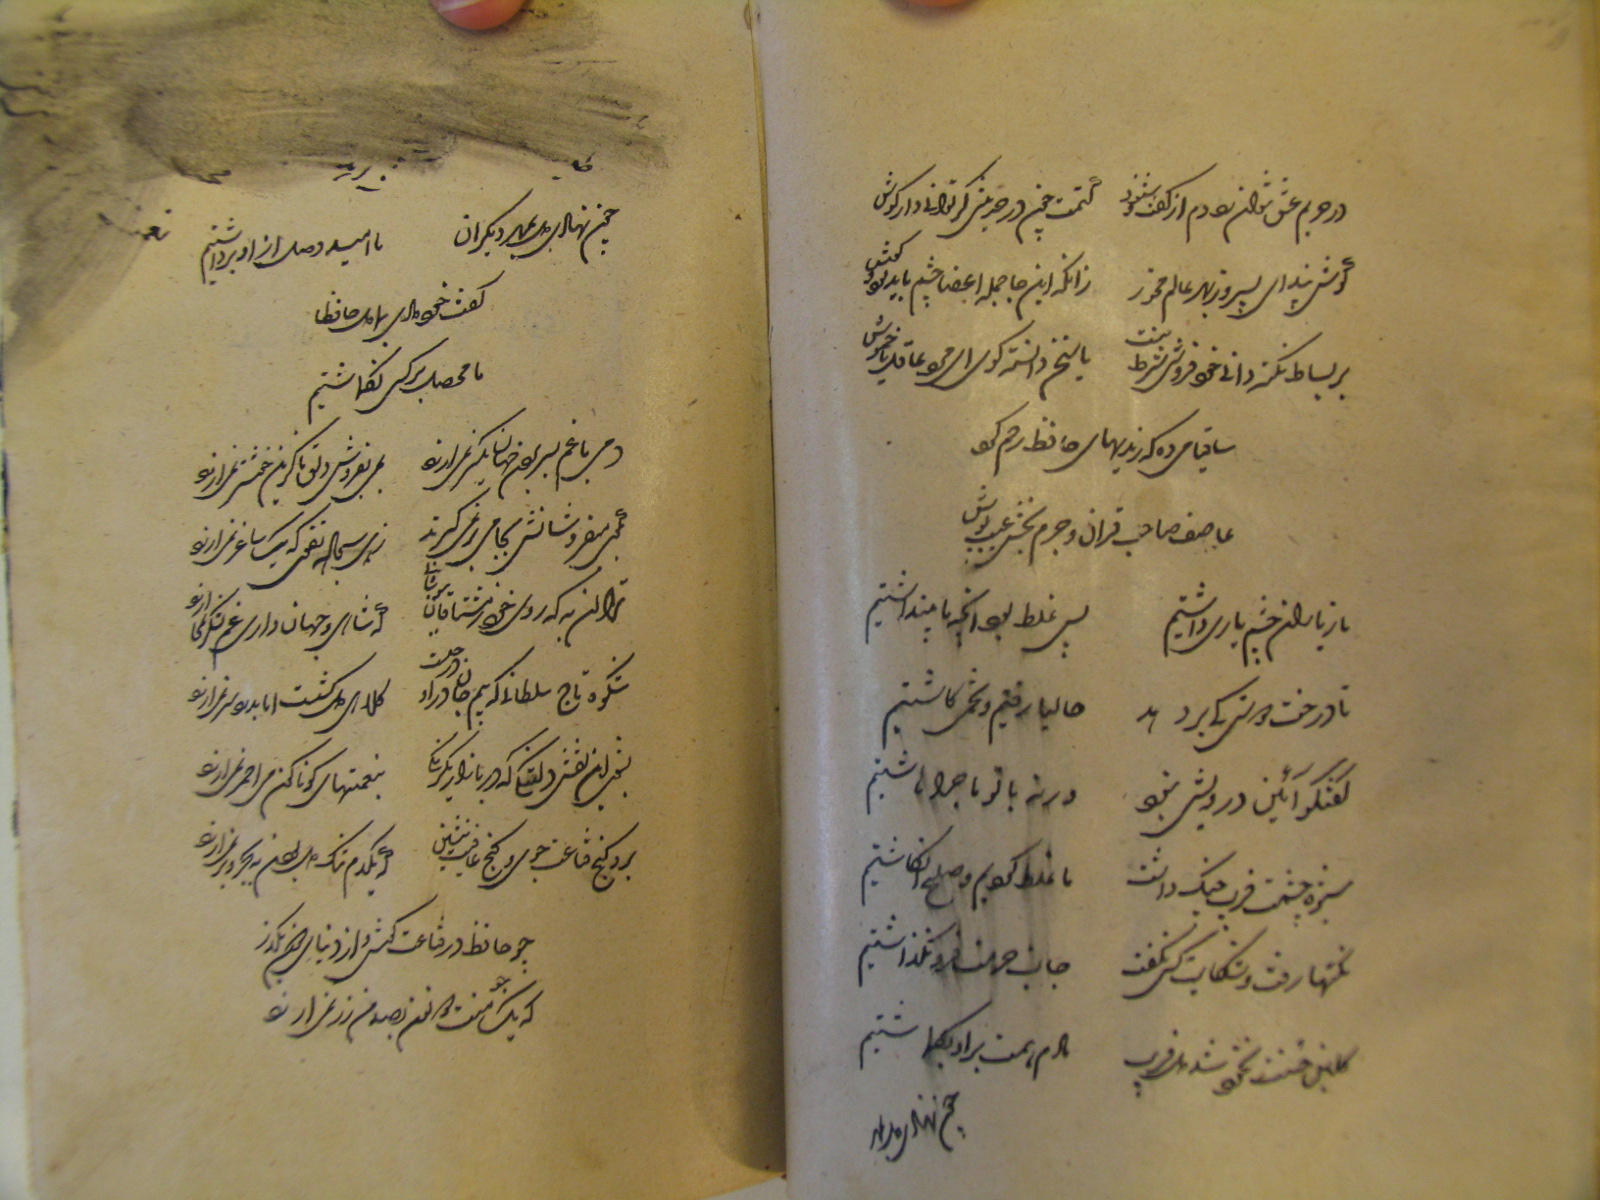 در حریم عشق نتوان زد دم از گفت و شنود گشت چین در جبینش گر توانی دار گوش
گوش پند ای پسر وز بهر عالم غم مخور زانکه این جا جمله اعضا چشم باید بود و گوش
بر بساط نکته دانی خود فروشی شرط نیست یا سخن دانسته گوی ای مرد عاقل یا خموش
ساقیا می ده که رندیهای حافظ رحم کو
عاصف صاحب قران و جرم بخش عیب پوش
ما ز یاران چشم یاری داشتیم پس غلط بود آنچه ما پنداشتیم
تا درخت دوستی کی بر دهد حالیا رفتیم و تخمی کاشتیم
گفتگو آئین درویشی نبود ورنه با تو ماجراها داشتیم
شیوه چشمت فریب جنگ داشت ما غلط کردیم و صلح انگاشتیم
نکتها رفت و شکایت کس نگفت جانب حرمت فرو نگذاشتیم
گلبن حسنت نخود شد دلفریب ما دم همت بر او بگماشتیم
چین نهادی دل بمهر
چین نهادی دل بمهر دیگران ما امید وصل از او برداشتیم
گفت خود دادی بما دل حافظا
ما محصل بر کسی نگماشتیم
دمی با غم بسر بردن جهان یکسر نمی ارزد بمی بفروش دلق ما کزین خوشتر نمی ارزد
بکوی میفروشانش بجامی بر نمی گیرند زهی سجاده تقوی که یک ساغر نمی ارزد
ترا آن به که روی خود ز مشتاقان بپوشانی که شادی جهان داری غم لشکر نمی ارزد
شکوه تاج سلطانی که بیم جان در او درجست کلاهی دلکشست اما بدرد سر نمی ارزد
بشوی این نقش دلتنگی که در بازار یکرنگی
برو کنج قناعت جوی و کنج عافیت بنشین که یکدم تنگ دل بودن به بحر و بر نمی ارزد
چو حافظ در قناعت کوش و از دنیای دون بگذر
که یک جو منت دونان بصد من زر نمی ارزد